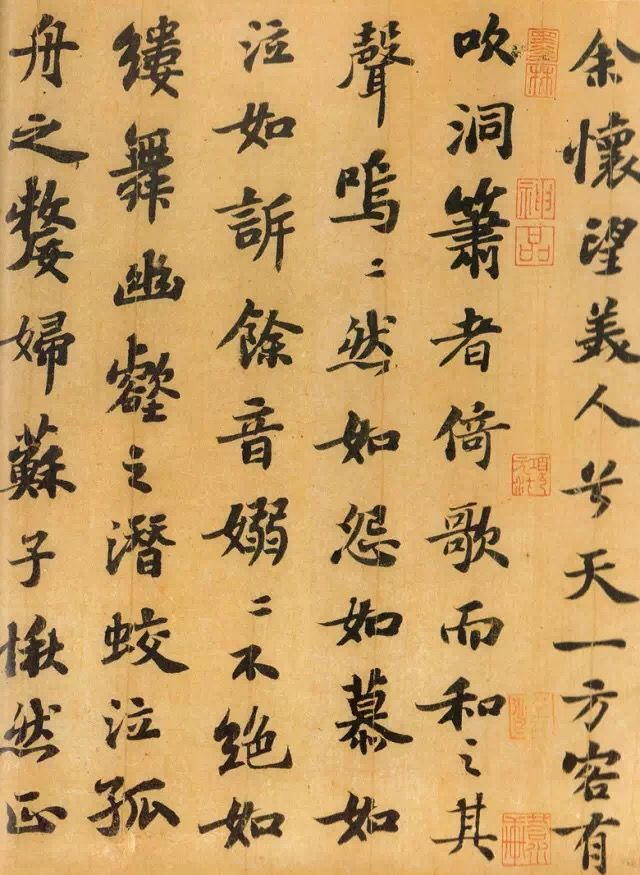 余懷望美人兮天一方客有
吹洞簫者倚歌而和之其
聲嗚〻然如怨如慕如
泣如訴餘音嫋〻不絕如
縷舞幽壑之潛蛟泣孤
舟之嫠婦蘇子愀然正
墨林
神品